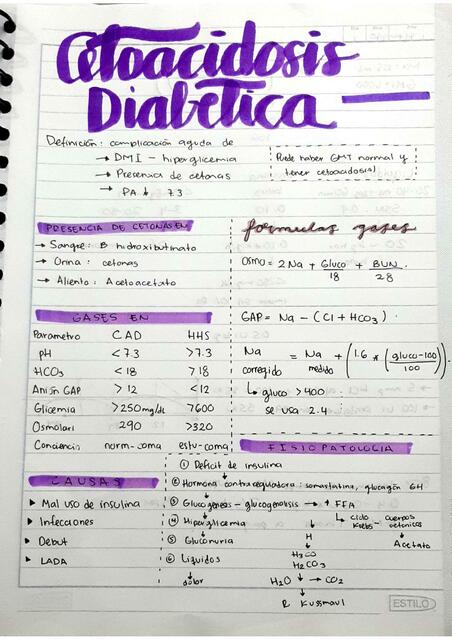 Cetoacidosis
Diabetica
Definición: complicación aguda de
→ DMI - hiperglicemia
→ Presencia de cetonas
→ PA ↓ 7.3
Puede haber GMT normal y
tener cetoacidosis!
PRESENCIA DE CETONAS EN
→ Sangre: B hidroxibutirato
→ Orina: cetonas
→ Aliento: Acetoacetato
formulas gases
Osmo = 2Na + Gluco/18 + BUN/28.
GAP = Na - (Cl + HCO3).
Na corregido = Na medido + (1.6 * (gluco-100)/100).
↳ gluco > 400
se usa 2.4
GASES EN
Parametro CAD HHS
pH < 7.3 > 7.3
HCO3 < 18 > 18
Anión GAP > 12 < 12
Glicemia > 250 mg/dL > 600
Osmolari 290 > 320
Conciencia norm-coma estu-coma
FISIOPATOLOGIA
① Deficit de insulina
② Hormona contrareguladora: somatostatina, glucagón GH
③ Glucogenesis - glucogenolisis → ↑ FFA
↳ ciclo Krebs - cuerpos cetonicos
④ Hiperglicemia
⑤ Gluconuria H Acetato
⑥ Liquidos H2CO
H2CO3
dolor H2O ↓ → CO2
R Kussmaul
CAUSAS
▶ Mal uso de insulina
▶ Infecciones
▶ Debut
▶ LADA
ESTILO